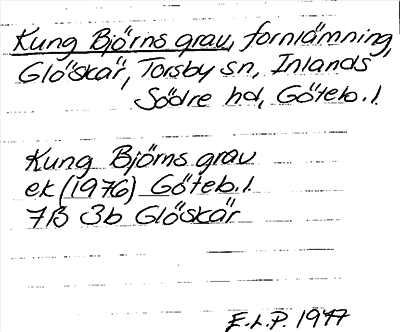 Kung Björns grav, fornlämning,
Glöskär, Torsby sn, Inlands
Södre hd, Göteb. l.
Kung Björns grav
ek (1976) Göteb. l.
7B 3b Glöskär
E.L.P. 1977